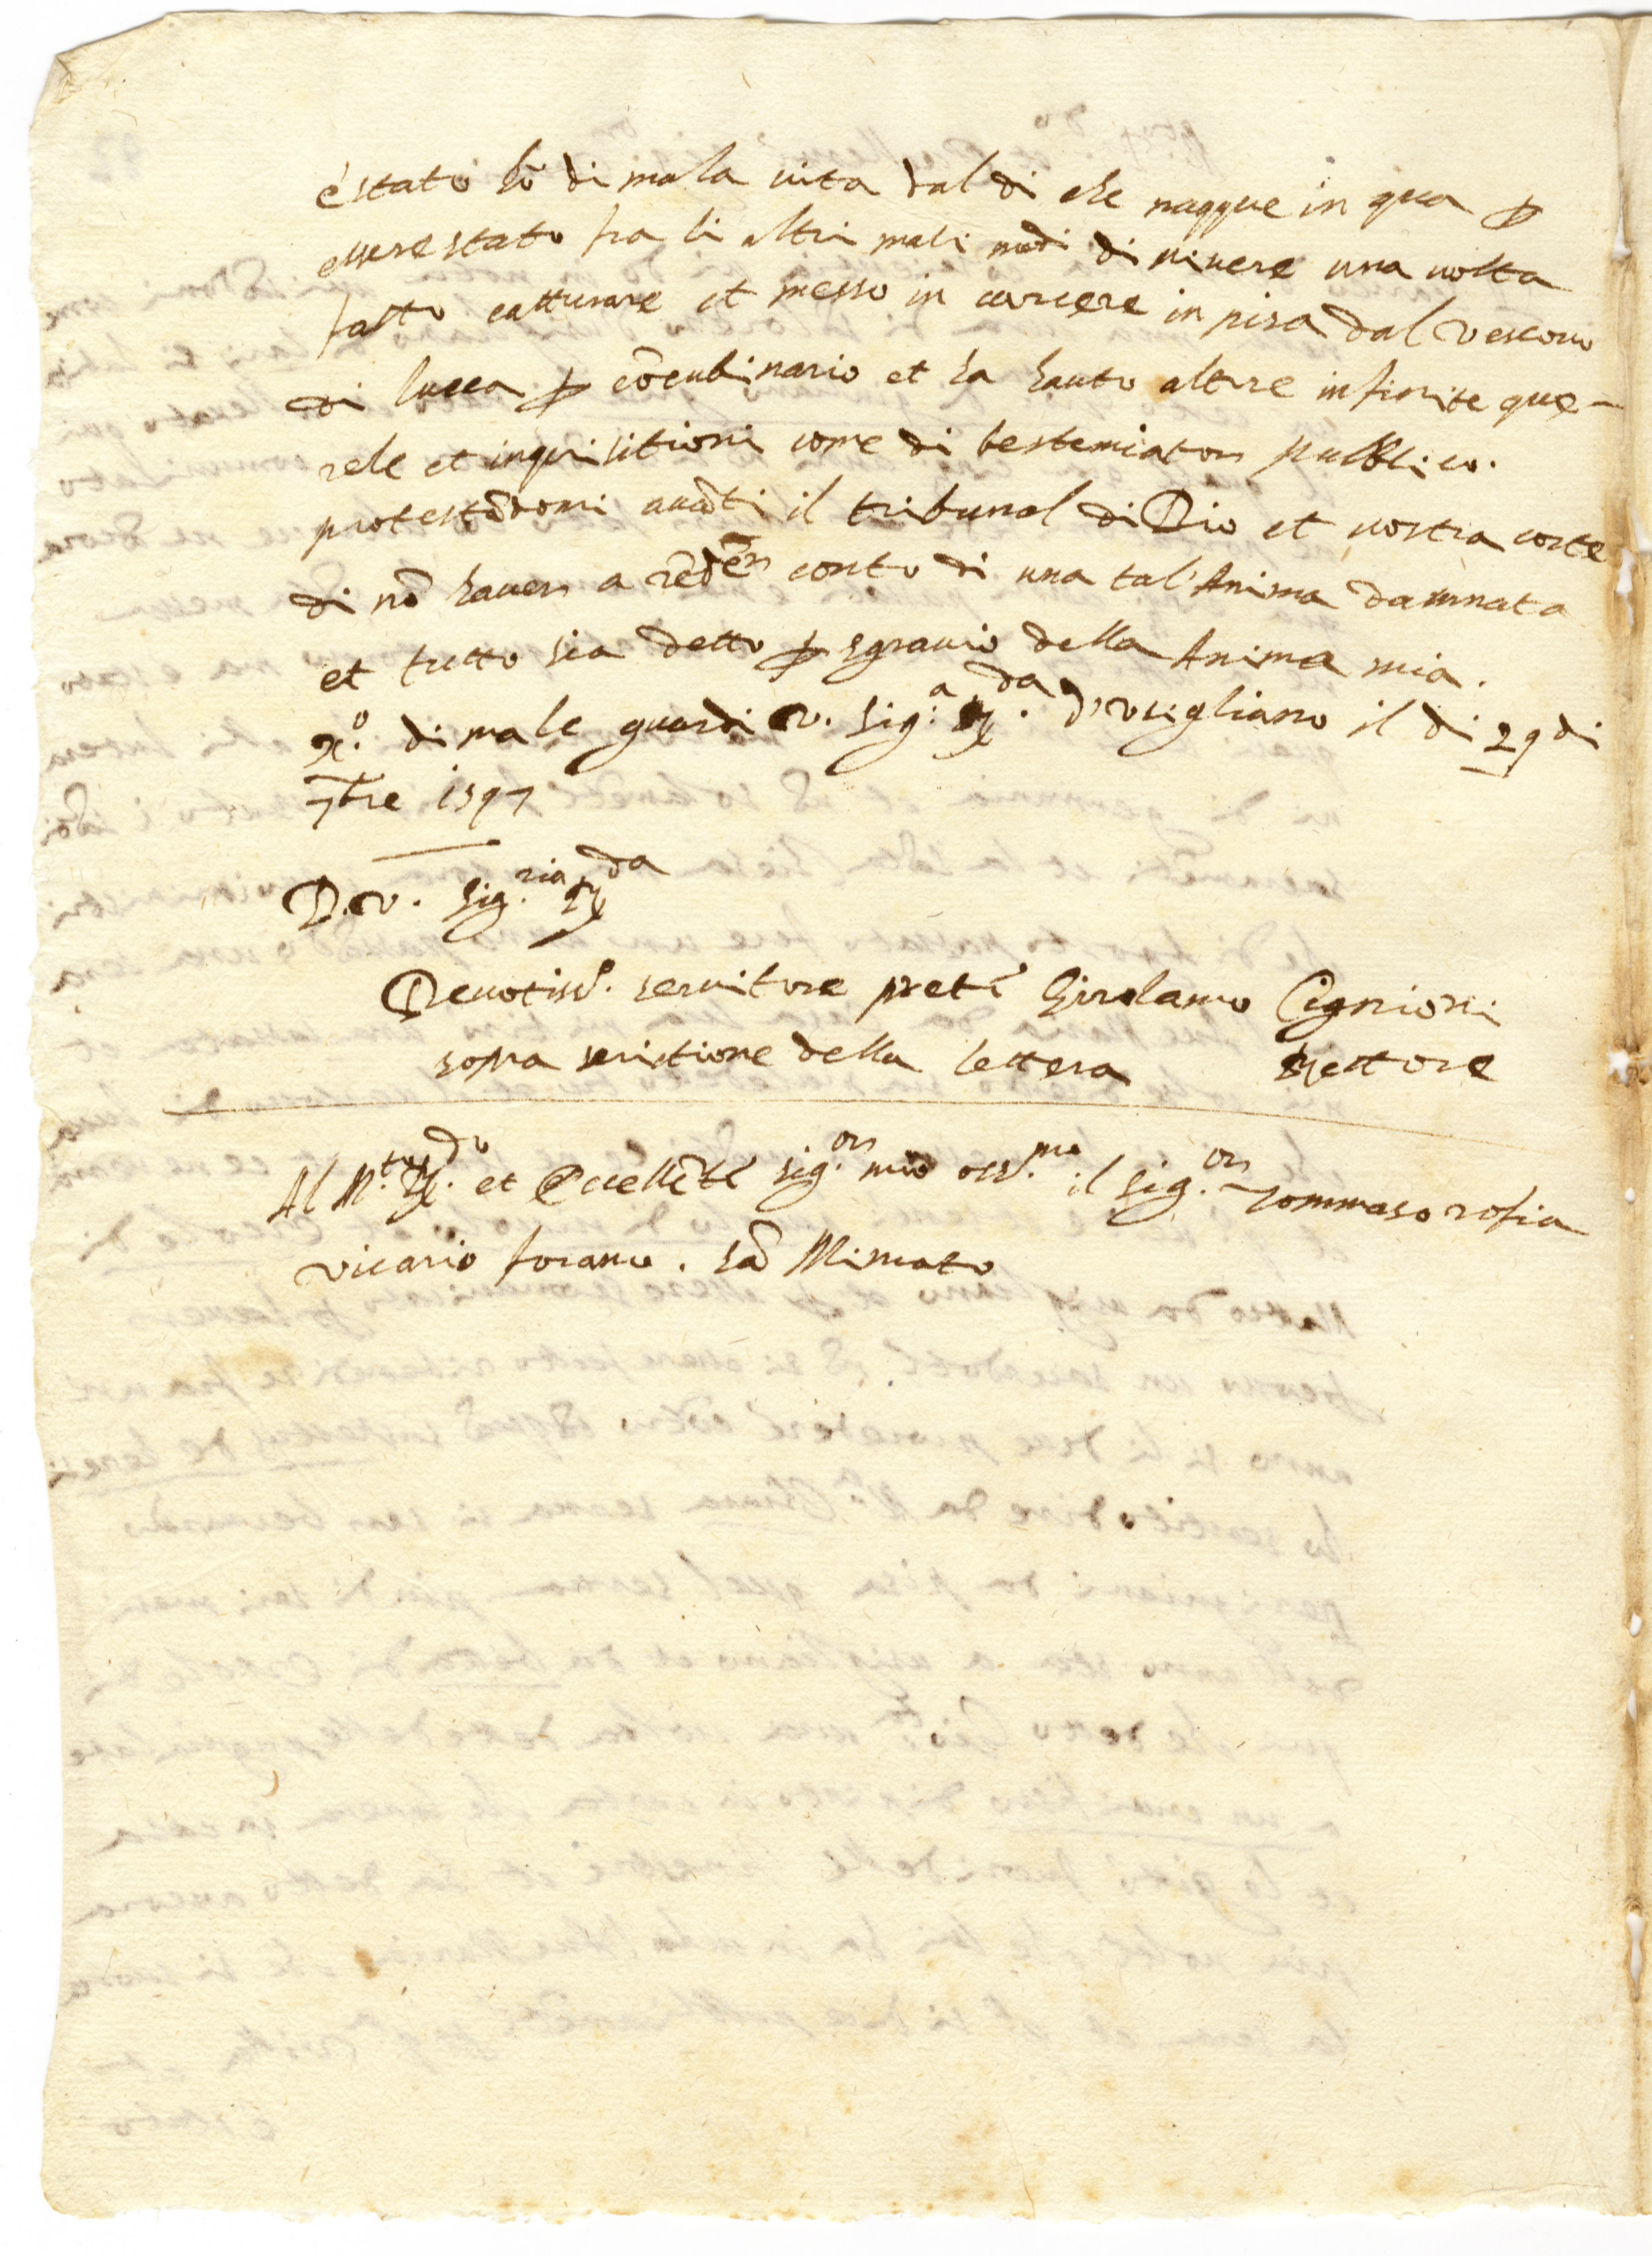 è stato hō di mala vita dal di che nacque in qua ꝑ
essere stato fra li altri mali modi di vivere una uolta
fatto catturare et messo in carcere in pisa dal vescovo
di lucca ꝑ cōcubinario et ha hauto altre infinite que-
rele et inquisitioni come di bestemiator publico.
protestādomi auāti il tribunal di Dio et vostra corte
di nō hauer a rēder conto di una tal' Anima damnata
et tutto sia detto ꝑ sgrauio della Anima mia.
X.º di male guardi v. sig.ª R.da d'vsigliano il di 29 di
7bre 1597
D. v. sig.ria R.da
Deuotiss.º seruitore prete Girolamo Cignioni
sopra scritione della lettera Rettore
Al M.to R.do et Eccellēte sig.or mio oss.mo il sig.or Tommaso rofia
vicario foraneo. sā Miniato